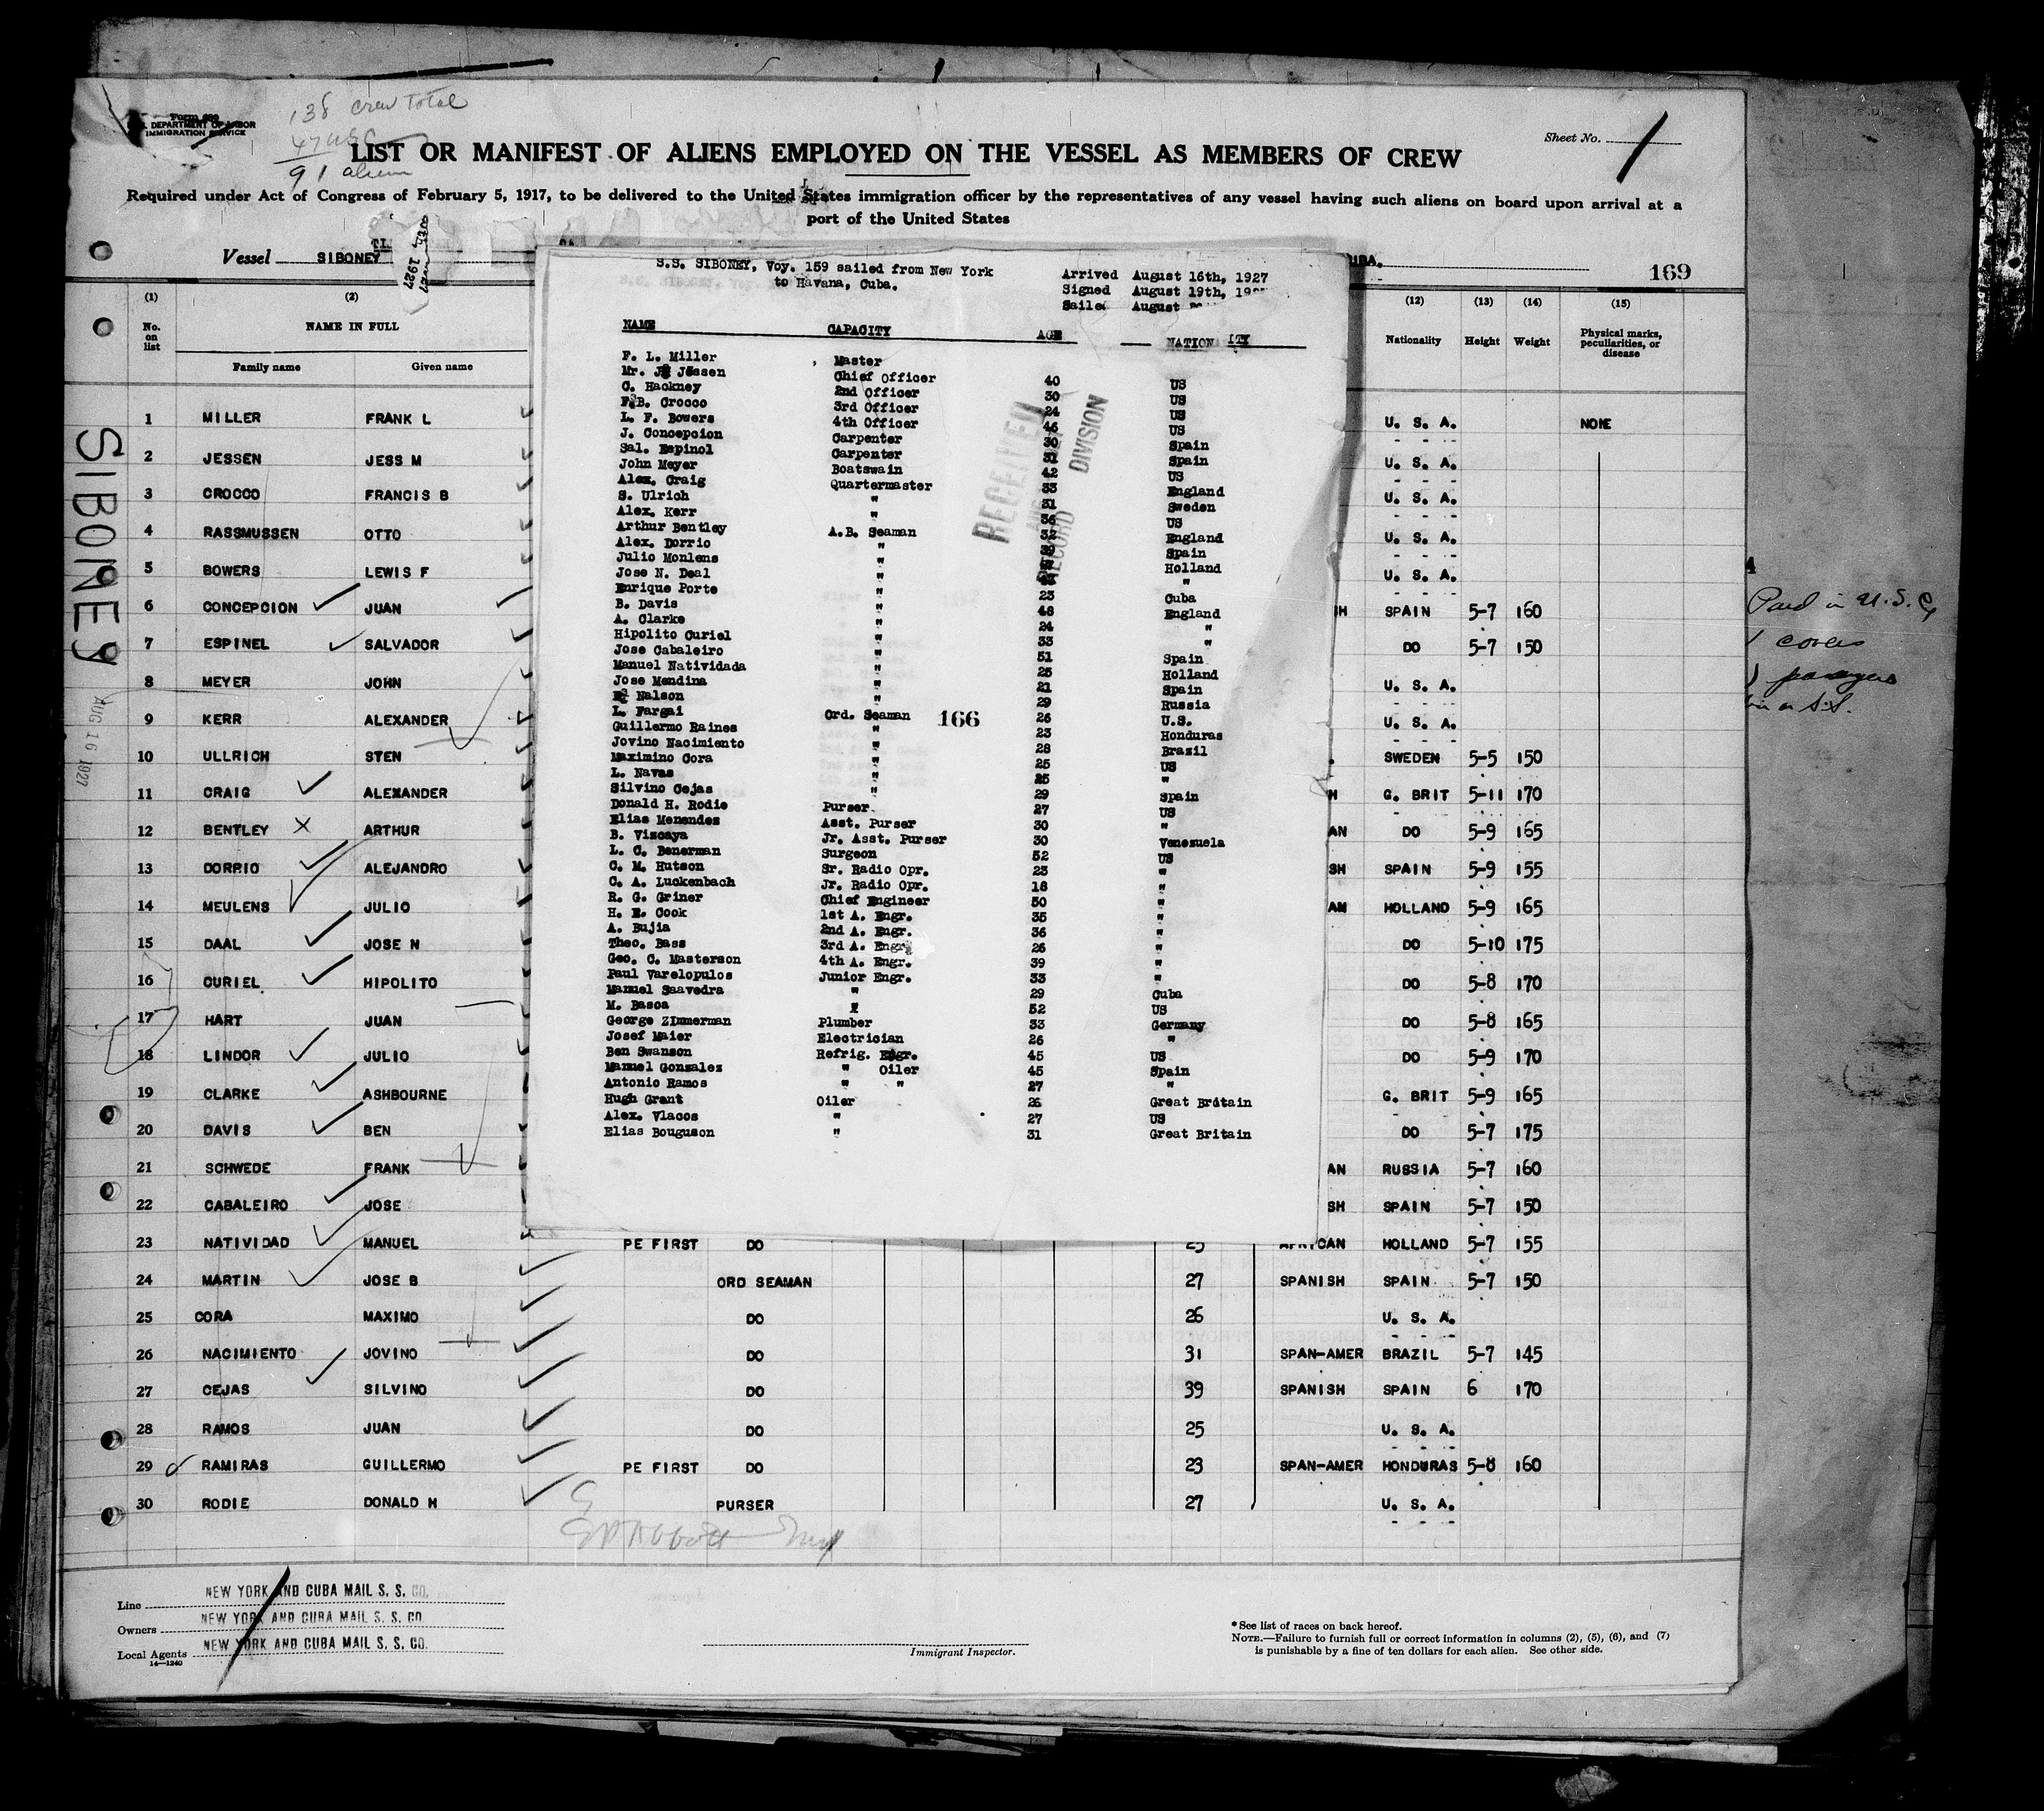 Form 680
U. S. DEPARTMENT OF LABOR
IMMIGRATION SERVICE
138 crew total
91 alien
Sheet No. 1
LIST OR MANIFEST OF ALIENS EMPLOYED ON THE VESSEL AS MEMBERS OF CREW
Required under Act of Congress of February 5, 1917, to be delivered to the United States immigration officer by the representatives of any vessel having such aliens on board upon arrival at a
port of the United States
Vessel SIBONEY
1927
169
(1) (2) (12) (13) (14) (15)
No. on list NAME IN FULL Nationality Height Weight Physical marks, peculiarities, or disease
Family name Given name
1 MILLER FRANK L U. S. A. NONE
2 JESSEN JESS M U. S. A.
3 CROCCO FRANCIS B U. S. A.
4 RASSMUSSEN OTTO U. S. A.
5 BOWERS LEWIS F U. S. A.
6 CONCEPCION JUAN SH SPAIN 5-7 160
7 ESPINEL SALVADOR DO 5-7 150
8 MEYER JOHN U. S. A.
9 KERR ALEXANDER U. S. A.
10 ULLRICH STEN SWEDEN 5-5 150
11 CRAIG ALEXANDER H G. BRIT 5-11 170
12 BENTLEY ARTHUR AN DO 5-9 165
13 DORRIO ALEJANDRO SH SPAIN 5-9 155
14 MEULENS JULIO AM HOLLAND 5-9 165
15 DAAL JOSE N DO 5-10 175
16 CURIEL HIPOLITO DO 5-8 170
17 HART JUAN DO 5-8 165
18 LINDOR JULIO DO 5-9 170
19 CLARKE ASHBOURNE G. BRIT 5-9 165
20 DAVIS BEN DO 5-7 175
21 SCHWEDE FRANK AN RUSSIA 5-7 160
22 CABALEIRO JOSE SH SPAIN 5-7 150
23 NATIVIDAD MANUEL PE FIRST DO 25 AFRICAN HOLLAND 5-7 155
24 MARTIN JOSE B ORD SEAMAN 27 SPANISH SPAIN 5-7 150
25 CORA MAXIMO DO 26 U. S. A.
26 NACIMIENTO JOVINO DO 31 SPAN-AMER BRAZIL 5-7 145
27 CEJAS SILVINO DO 39 SPANISH SPAIN 6 170
28 RAMOS JUAN DO 25 U. S. A.
29 RAMIRAS GUILLERMO PE FIRST DO 23 SPAN-AMER HONDURAS 5-8 160
30 RODIE DONALD H PURSER 27 U. S. A.
SIBONEY
AUG 16 1927
S.S. SIBONEY, Voy. 159 sailed from New York
to Havana, Cuba.
Arrived August 16th, 1927
Signed August 19th,
Sailed August
NAME CAPACITY AGE NATIONALITY
RECEIVED
RECORD DIVISION
F. L. Miller Master 40 US
Mr. J. Jessen Chief Officer 30 US
C. Hackney 2nd Officer 24 US
F. B. Crocco 3rd Officer 46 US
L. F. Bowers 4th Officer 30 Spain
J. Concepcion Carpenter 31 Spain
Sal. Espinol Carpenter 42 US
John Meyer Boatswain 33 England
Alex. Craig Quartermaster 31 Sweden
S. Ulrich " 36 US
Alex. Kerr " 32 England
Arthur Bentley A.B. Seaman 39 Spain
Alex. Dorrio " Holland
Julio Monlens " "
Jose N. Deal " 23 Cuba
Enrique Porte " 48 England
B. Davis " 24 "
A. Clarke " 33 "
Hipolito Curiel " 51 Spain
Jose Cabaleiro " 25 Holland
Manuel Natividada " 21 Spain
Jose Mendina " 29 Russia
Nalson " 26 U.S.
L. Fargai Ord. Seaman 23 Honduras
166
Guillermo Raines " 28 Brazil
Jovino Nacimiento " 25 US
Maximino Cora " 25 "
L. Navas " 29 Spain
Silvino Cejas " 27 US
Donald H. Rodie Purser 30 "
Elias Menendez Asst. Purser 30 Venezuela
B. Viscaya Jr. Asst. Purser 52 US
L. C. Benerman Surgeon 23 "
C. M. Hutson Sr. Radio Opr. 18 "
C. A. Luckenbach Jr. Radio Opr. 50 "
R. G. Griner Chief Engineer 35 "
H. E. Cook 1st A. Engr. 36 "
A. Bujia 2nd A. Engr. 26 "
Theo. Bass 3rd A. Engr. 39 "
Geo. C. Masterson 4th A. Engr. 33 "
Paul Varelopulos Junior Engr. 29 Cuba
Manuel Saavedra " 52 US
M. Basoa " 33 Germany
George Zimmerman Plumber 26 "
Josef Maier Electrician 45 US
Ben Swanson Refrig. Engr. 45 Spain
Manuel Gonzalez " Oiler 27 "
Antonio Ramos " " 26 Great Britain
Hugh Grant Oiler 27 US
Alex. Vlacos " 31 Great Britain
Elias Bouguson "
Paid in U.S.
Line NEW YORK AND CUBA MAIL S. S. CO.
Owners NEW YORK AND CUBA MAIL S. S. CO.
Local Agents NEW YORK AND CUBA MAIL S. S. CO.
14—1240
Immigrant Inspector.
* See list of races on back hereof.
NOTE.—Failure to furnish full or correct information in columns (2), (5), (6), and (7)
is punishable by a fine of ten dollars for each alien. See other side.